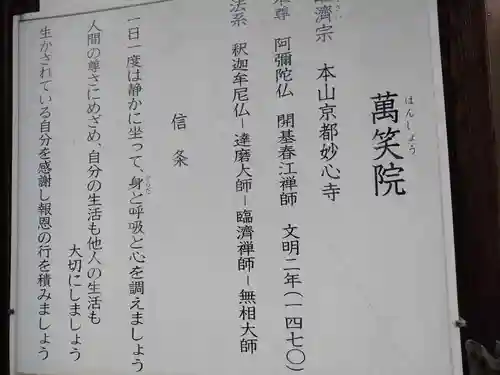 萬笑院
ばんしょう
濟宗 本山京都妙心寺
尊 阿彌陀仏 開基春江禅師 文明二年(一四七〇)
法系 釈迦牟尼仏ー達磨大師ー臨濟禅師ー無相大師
信条
一日一度は静かに坐って、身と呼吸と心を調えましょう
からだ
人間の尊さにめざめ、自分の生活も他人の生活も
大切にしましょう
生かされている自分を感謝し報恩の行を積みましょう